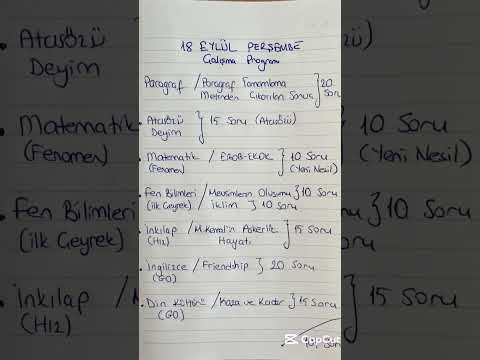 18 EYLÜL PERŞEMBE
Çalışma Programı
Paragraf / Paragraf Tamamlama } 20
Metinden Çıkarılan Sonuç
Atasözü } 15 Soru (Atasözü)
Deyim
Matematik / EBOB-EKOK } 10 Soru
(Fenomen) (Yeni Nesil)
Fen Bilimleri / Mevsimlerin Oluşumu } 10 Soru
(ilk Geyrek) iklim } 10 Soru
inkılap / M.Kemal'in Askerlik } 15 Soru
(Hız) Hayatı
ingilizce / Friendship } 20 Soru
(GO)
Din Kültürü / Kaza ve Kader } 15 Soru
(GO)
Atasözü
Deyim
Matematik
(Fenomen)
Fen Bilimleri
(ilk Geyrek)
inkılap /
(Hız)
10 Soru
(Yeni Nesil)
} 10 Soru
15 Soru
CapCut